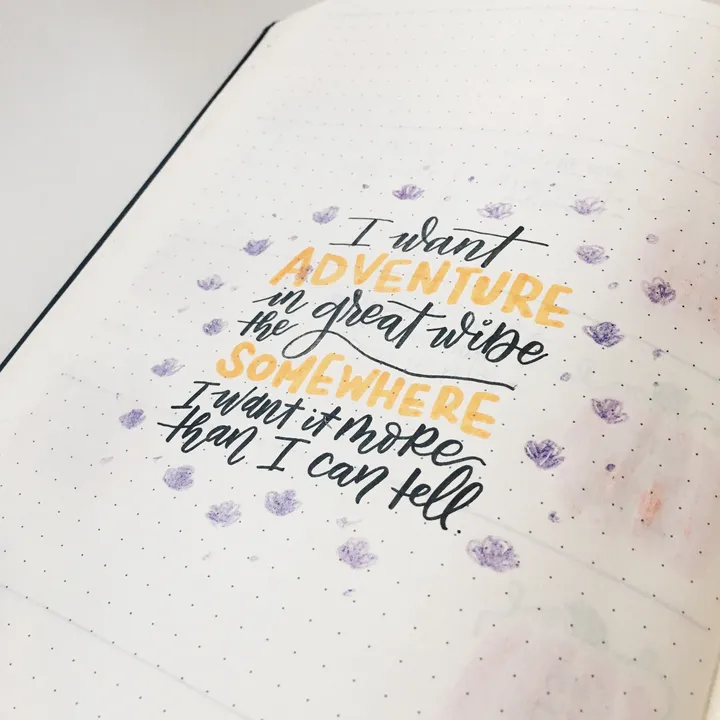 I want
ADVENTURE
in the great wide
SOMEWHERE
I want it more
than I can tell.